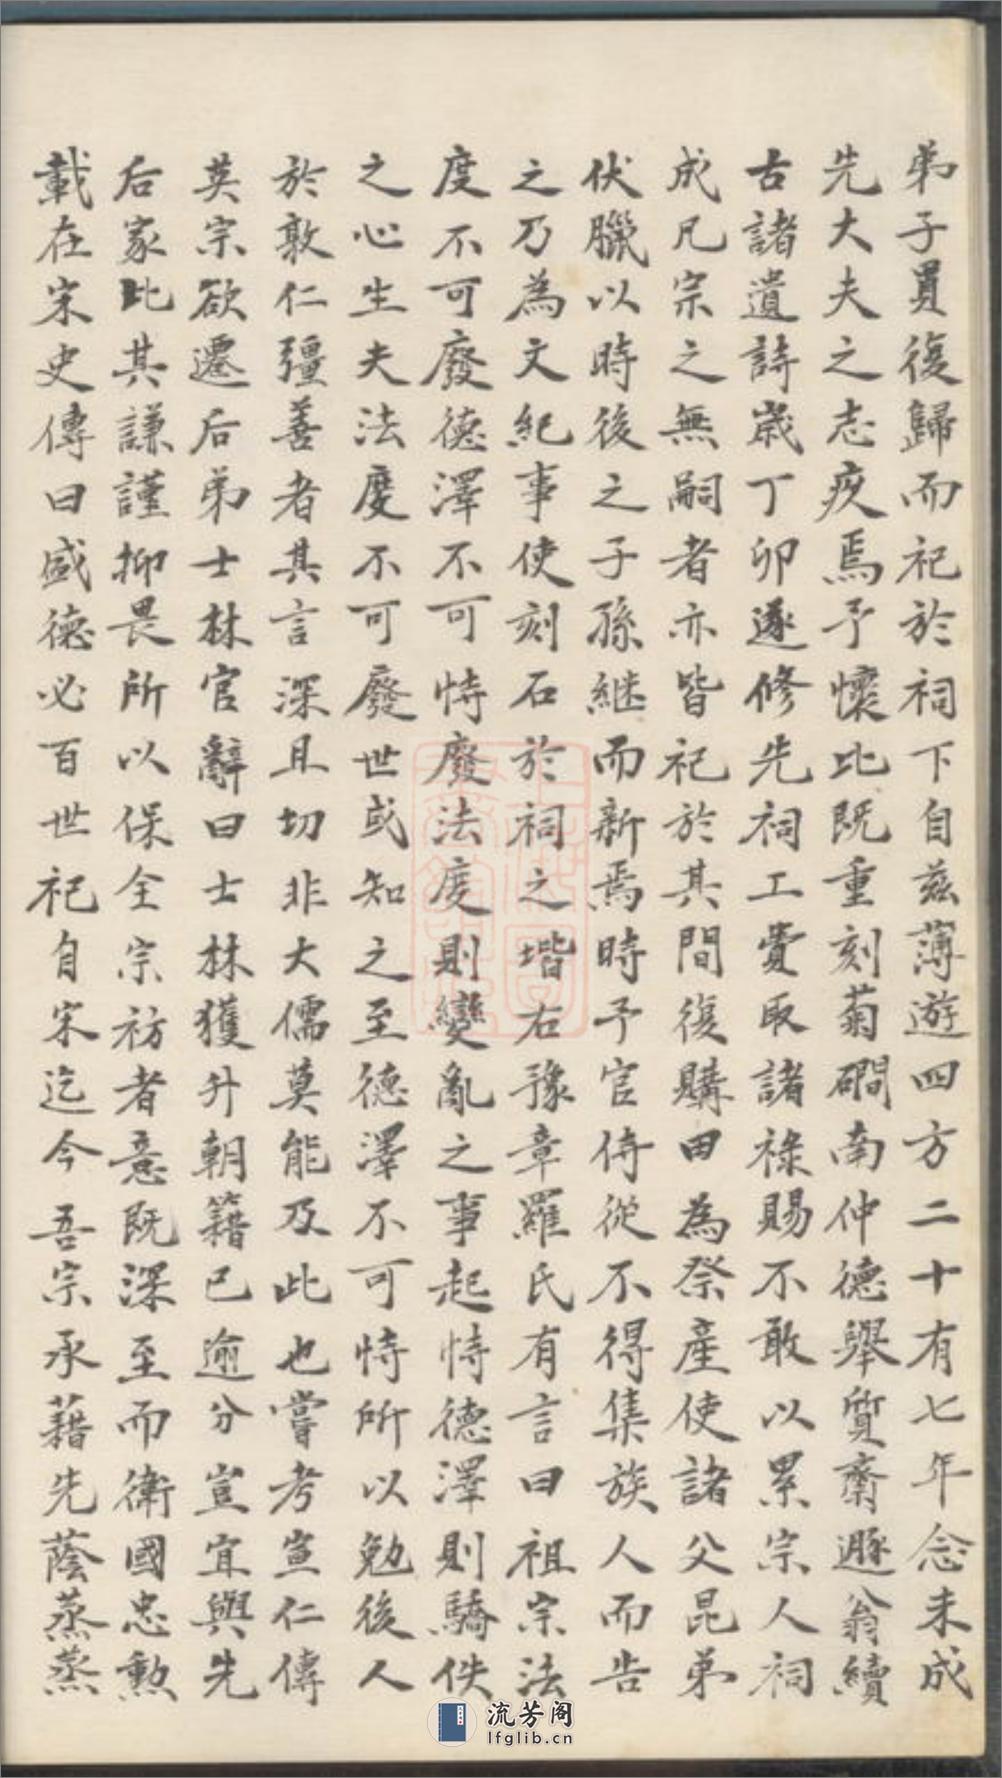 弟子貫復歸而祀於祠下自茲薄遊四方二十有七年念未成
先大夫之志疚焉予懷比既重刻菊磵南仲德舉質齋遯翁續
古諸遺詩歲丁卯遂修先祠工費取諸祿賜不敢以累宗人祠
成凡宗之無嗣者亦皆祀於其間復購田為祭產使諸父昆弟
伏臘以時後之子孫継而新焉時予官侍從不得集族人而告
之乃為文紀事使刻石於祠之堦右豫章羅氏有言曰祖宗法
度不可廢德澤不可恃廢法度則變亂之事起恃德澤則驕佚
之心生夫法度不可廢世或知之至德澤不可恃所以勉後人
於敦仁彊善者其言深且切非大儒莫能及此也嘗考宣仁傳
英宗欲遷后弟士林官辭曰士林獲升朝籍已逾分豈宜與先
后家比其謙謹抑畏所以保全宗祊者意既深至而衛國忠勲
載在宋史傳曰盛德必百世祀自宋迄今吾宗承藉先蔭蒸蒸
流芳阁
lfglib.cn